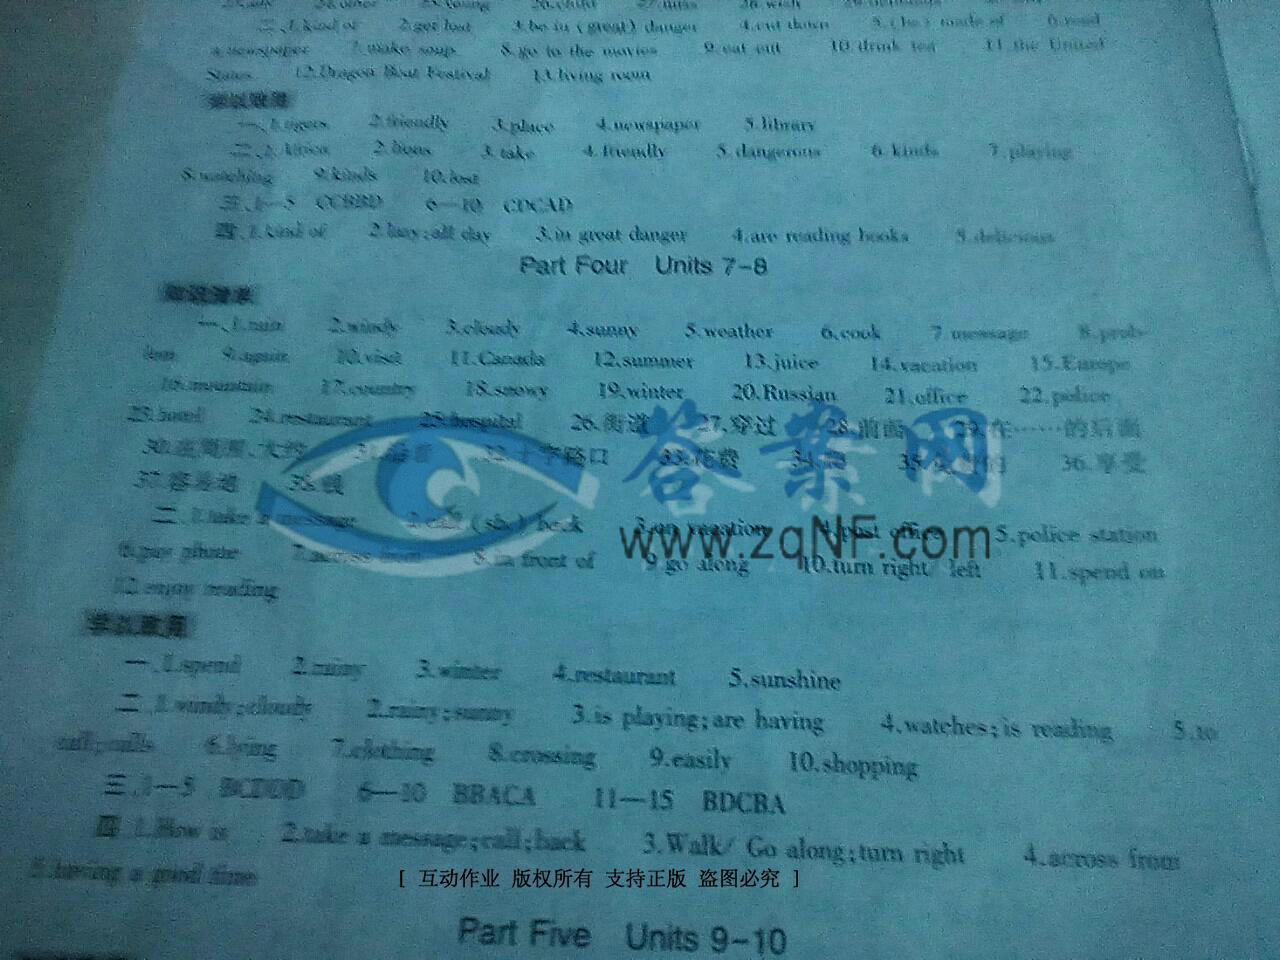 二、1.kind of 2.get lost 3.be in (great) danger 4.cut down 5.(be) made of 6.read
a newspaper 7.make soup 8.go to the movies 9.eat out 10.drink tea 11.the United
States 12.Dragon Boat Festival 13.living room
学以致用
一、1.tigers 2.friendly 3.place 4.newspaper 5.library
二、1.Africa 2.lions 3.take 4.friendly 5.dangerous 6.kinds 7.playing
8.watching 9.kinds 10.lost
三、1—5 CCBBD 6—10 CDCAD
四、1.kind of 2.lazy;all day 3.in great danger 4.are reading books 5.delicious
Part Four Units 7-8
知识清单
一、1.rain 2.windy 3.cloudy 4.sunny 5.weather 6.cook 7.message 8.prob-
lem 9.again 10.visit 11.Canada 12.summer 13.juice 14.vacation 15.Europe
16.mountain 17.country 18.snowy 19.winter 20.Russian 21.office 22.police
23.hotel 24.restaurant 25.hospital 26.街道 27.穿过 28.前面 29.在……的后面
32.十字路口 33.花费 36.享受
二、1.take a message 2.call (sb.) back 3.on vacation 4.post office 5.police station
6.pay phone 7.across from 8.in front of 9.go along 10.turn right/ left 11.spend on
12.enjoy reading
学以致用
一、1.spend 2.rainy 3.winter 4.restaurant 5.sunshine
二、1.windy;cloudy 2.rainy;sunny 3.is playing;are having 4.watches;is reading 5.to
call;calls 6.bring 7.clothing 8.crossing 9.easily 10.shopping
三、1—5 6—10 BBACA 11—15 BDCBA
四、1.How is 2.take a message;call;back 3.Walk/ Go along;turn right 4.across from
5.having a good time
Part Five Units 9-10
答案网
www.zqNF.com
[ 互动作业 版权所有 支持正版 盗图必究 ]